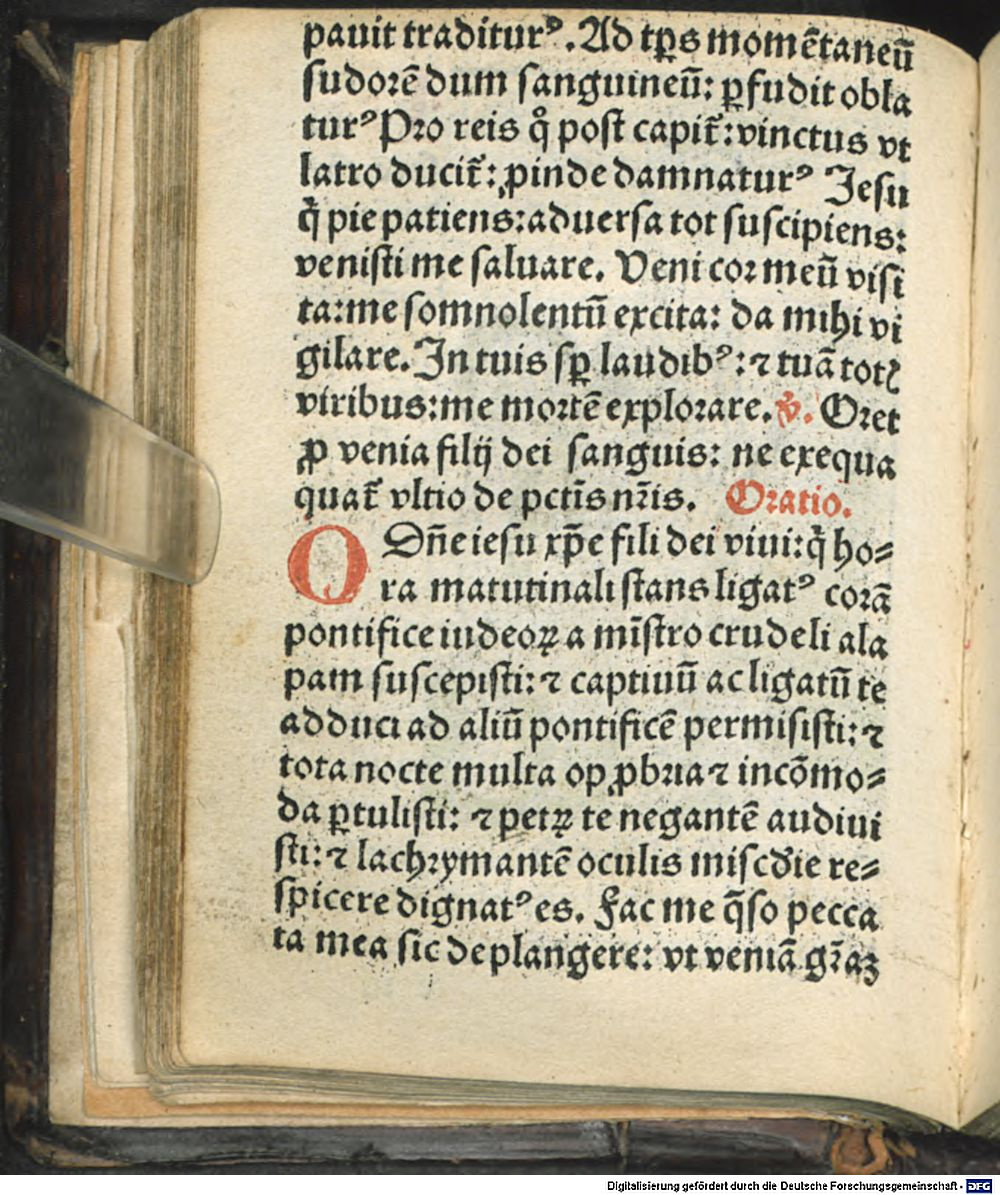 pauit traditurꝰ. Ad tp̄s momētaneū
sudorē dum sanguineū: ꝑfudit obla
turꝰ Pro reis q̊ post capit̄: vinctus vt
latro ducit̄: ꝓinde damnaturꝰ Jesu
q̇ pie patiens: aduersa tot suscipiens:
venisti me saluare. Veni cor meū visi
ta: me somnolentū excita: da mihi vi
gilare. In tuis sꝑ laudibꝰ: ⁊ tuā totꝭ
viribus: me mortē explorare. v̊. Oret
ꝓ venia filij dei sanguis: ne exequa
quat̄ vltio de pctīs nr̄is. Oratio.
O Dn̄e iesu xp̄e fili dei viui: q̇ ho⸗
ra matutinali stans ligatꝰ corā
pontifice iudeoꝝ a mīstro crudeli ala
pam suscepisti: ⁊ captiuū ac ligatū te
adduci ad aliū pontificē permisisti: ⁊
tota nocte multa opꝓbria ⁊ incōmo⸗
da ꝑtulisti: ⁊ petꝝ te negantē audiui
sti: ⁊ lachrymantē oculis miscd̄ie re⸗
spicere dignatꝰ es. Fac me q̄so pecca
ta mea sic deplangere: vt veniā gr̄aꝫ
Digitalisierung gefördert durch die Deutsche Forschungsgemeinschaft - DFG